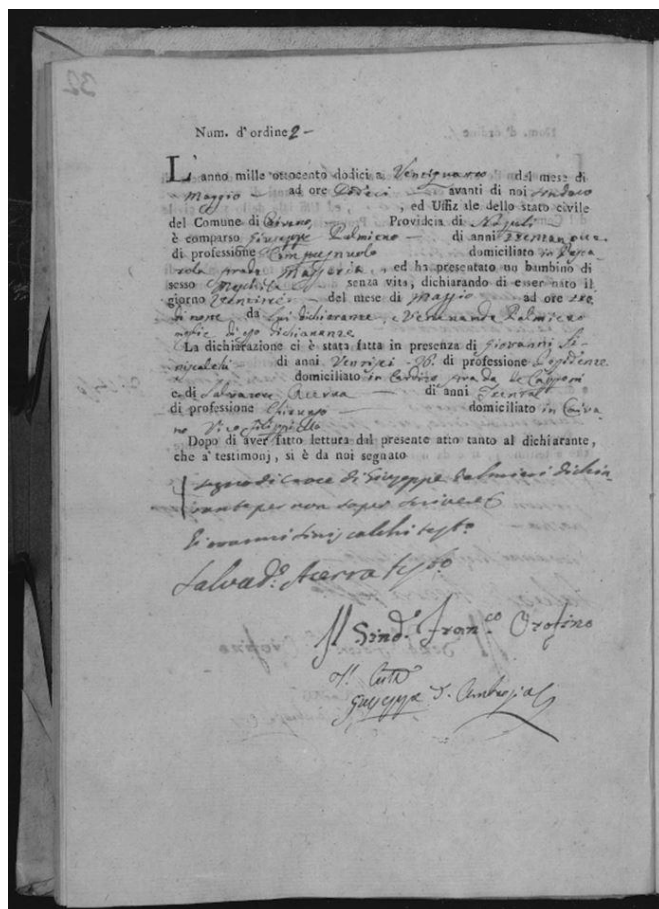 32
Num. d'ordine 2 –
L'anno mille ottocento dodici a Ventiquatro del mese di
Maggio – ad ore Dodeci – avanti di noi Sindaco
, ed Uffiziale dello stato civile
del Comune di Caivano – Providcia di Napuli
è comparso Giuseppe Palmiero – di anni
di professione Campagnuolo domiciliato in
strada Masseria, ed ha presentato un bambino di
sesso Maschile senza vita, dichiarando di esser nato il
giorno Ventitrè – del mese di Maggio – ad ore tre
di notte da Lui dichiarante, e Veneranda Palmiero
moglie di esso dichiarante
La dichiarazione ci è stata fatta in presenza di Giovanni Si-
niscalchi di anni Ventisei – 26 di professione Possidente
domiciliato in Cardito strada
e di Salvatore Acerra – di anni
di professione – domiciliato in Caiva
no Vico
Dopo di aver fatto lettura dal presente atto tanto al dichiarante,
che a' testimonj, si è da noi segnato
segno di Croce di Giuseppe Palmieri dichia
rante per non saper scrivere
Giovanni Siniscalchi testo
Salvad.e Acerra testo
Il Sind.o Fran.co Orofino
Giuseppe D. Ambrosio